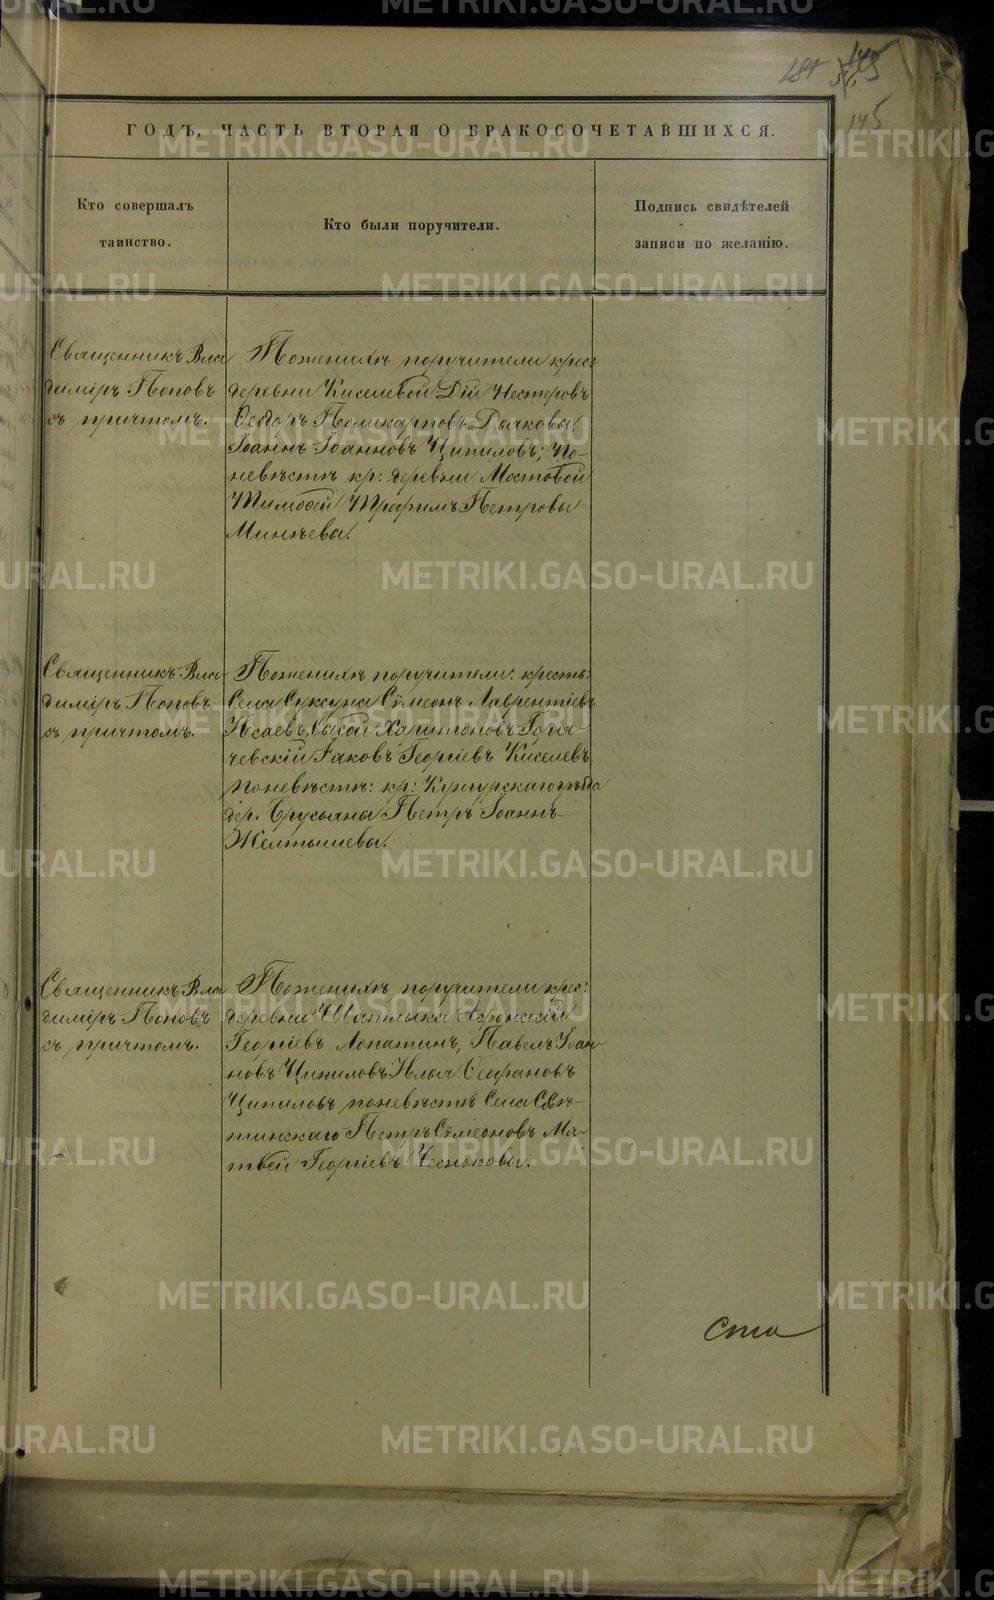 145
145
ГОДЪ, ЧАСТЬ ВТОРАЯ О БРАКОСОЧЕТАВШИХСЯ.
Кто совершалъ
таинство.
Кто были поручители.
Подпись свидѣтелей
записи по желанію.
Священникъ Вла
димiръ Поповъ
съ причтомъ.
Поженихѣ поручители крес:
деревни Киселевой Дiй Нестеровъ
Ѳеодоръ Поликарповъ Дьяковы
Iоаннъ Iоанновъ Ципиловъ; по-
невѣстѣ кр: деревни Мостовой
Тимоѳей Трофимъ Петровы
Минѣевы.
Священникъ Вла-
димiръ Поповъ
съ причтомъ.
Поженихѣ поручители: кресть:
Села Суксуна Сѵмеонъ Лаврентiевъ
Исаевъ, Харитоновъ
Iаковъ Георгiевъ Киселевъ
поневѣстѣ: кр: Кунгурскаго уѣзда
дер. Брусяна Петръ Iоаннъ
Желтышевы.
Священникъ Вла
димiръ Поповъ
съ причтомъ.
Поженихѣ поручители крес:
деревни Шатлыка
Георгiевъ Лопатинъ, Павелъ Iоан-
новъ Ципиловъ Илья Ѳеофановъ
Ципиловъ поневѣстѣ Села
тинскаго Петръ Сѵмеоновъ Ма-
твѣй Георгiевъ Чесноковы.
Ста
METRIKI.GASO-URAL.RU